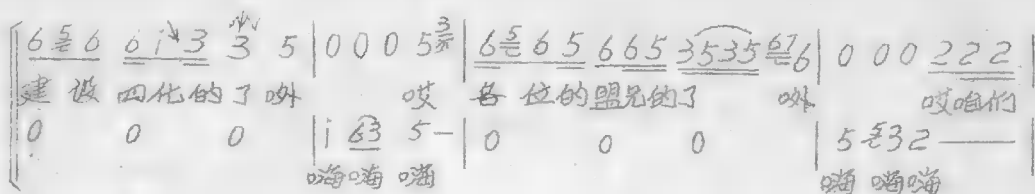 6 5 6 6 i 3 3 5 | 0 0 0 5 3 | 6 5 6 5 6 6 5 3 5 3 5 6 7 6 | 0 0 0 2 2 2 |
建设四化的了哟 哎各位的盟兄的了 哟 哎咱们
0 0 0 | i 6 3 5 — | 0 0 0 | 5 5 3 2 —— |
嗨嗨 嗨 嗨 嗨嗨